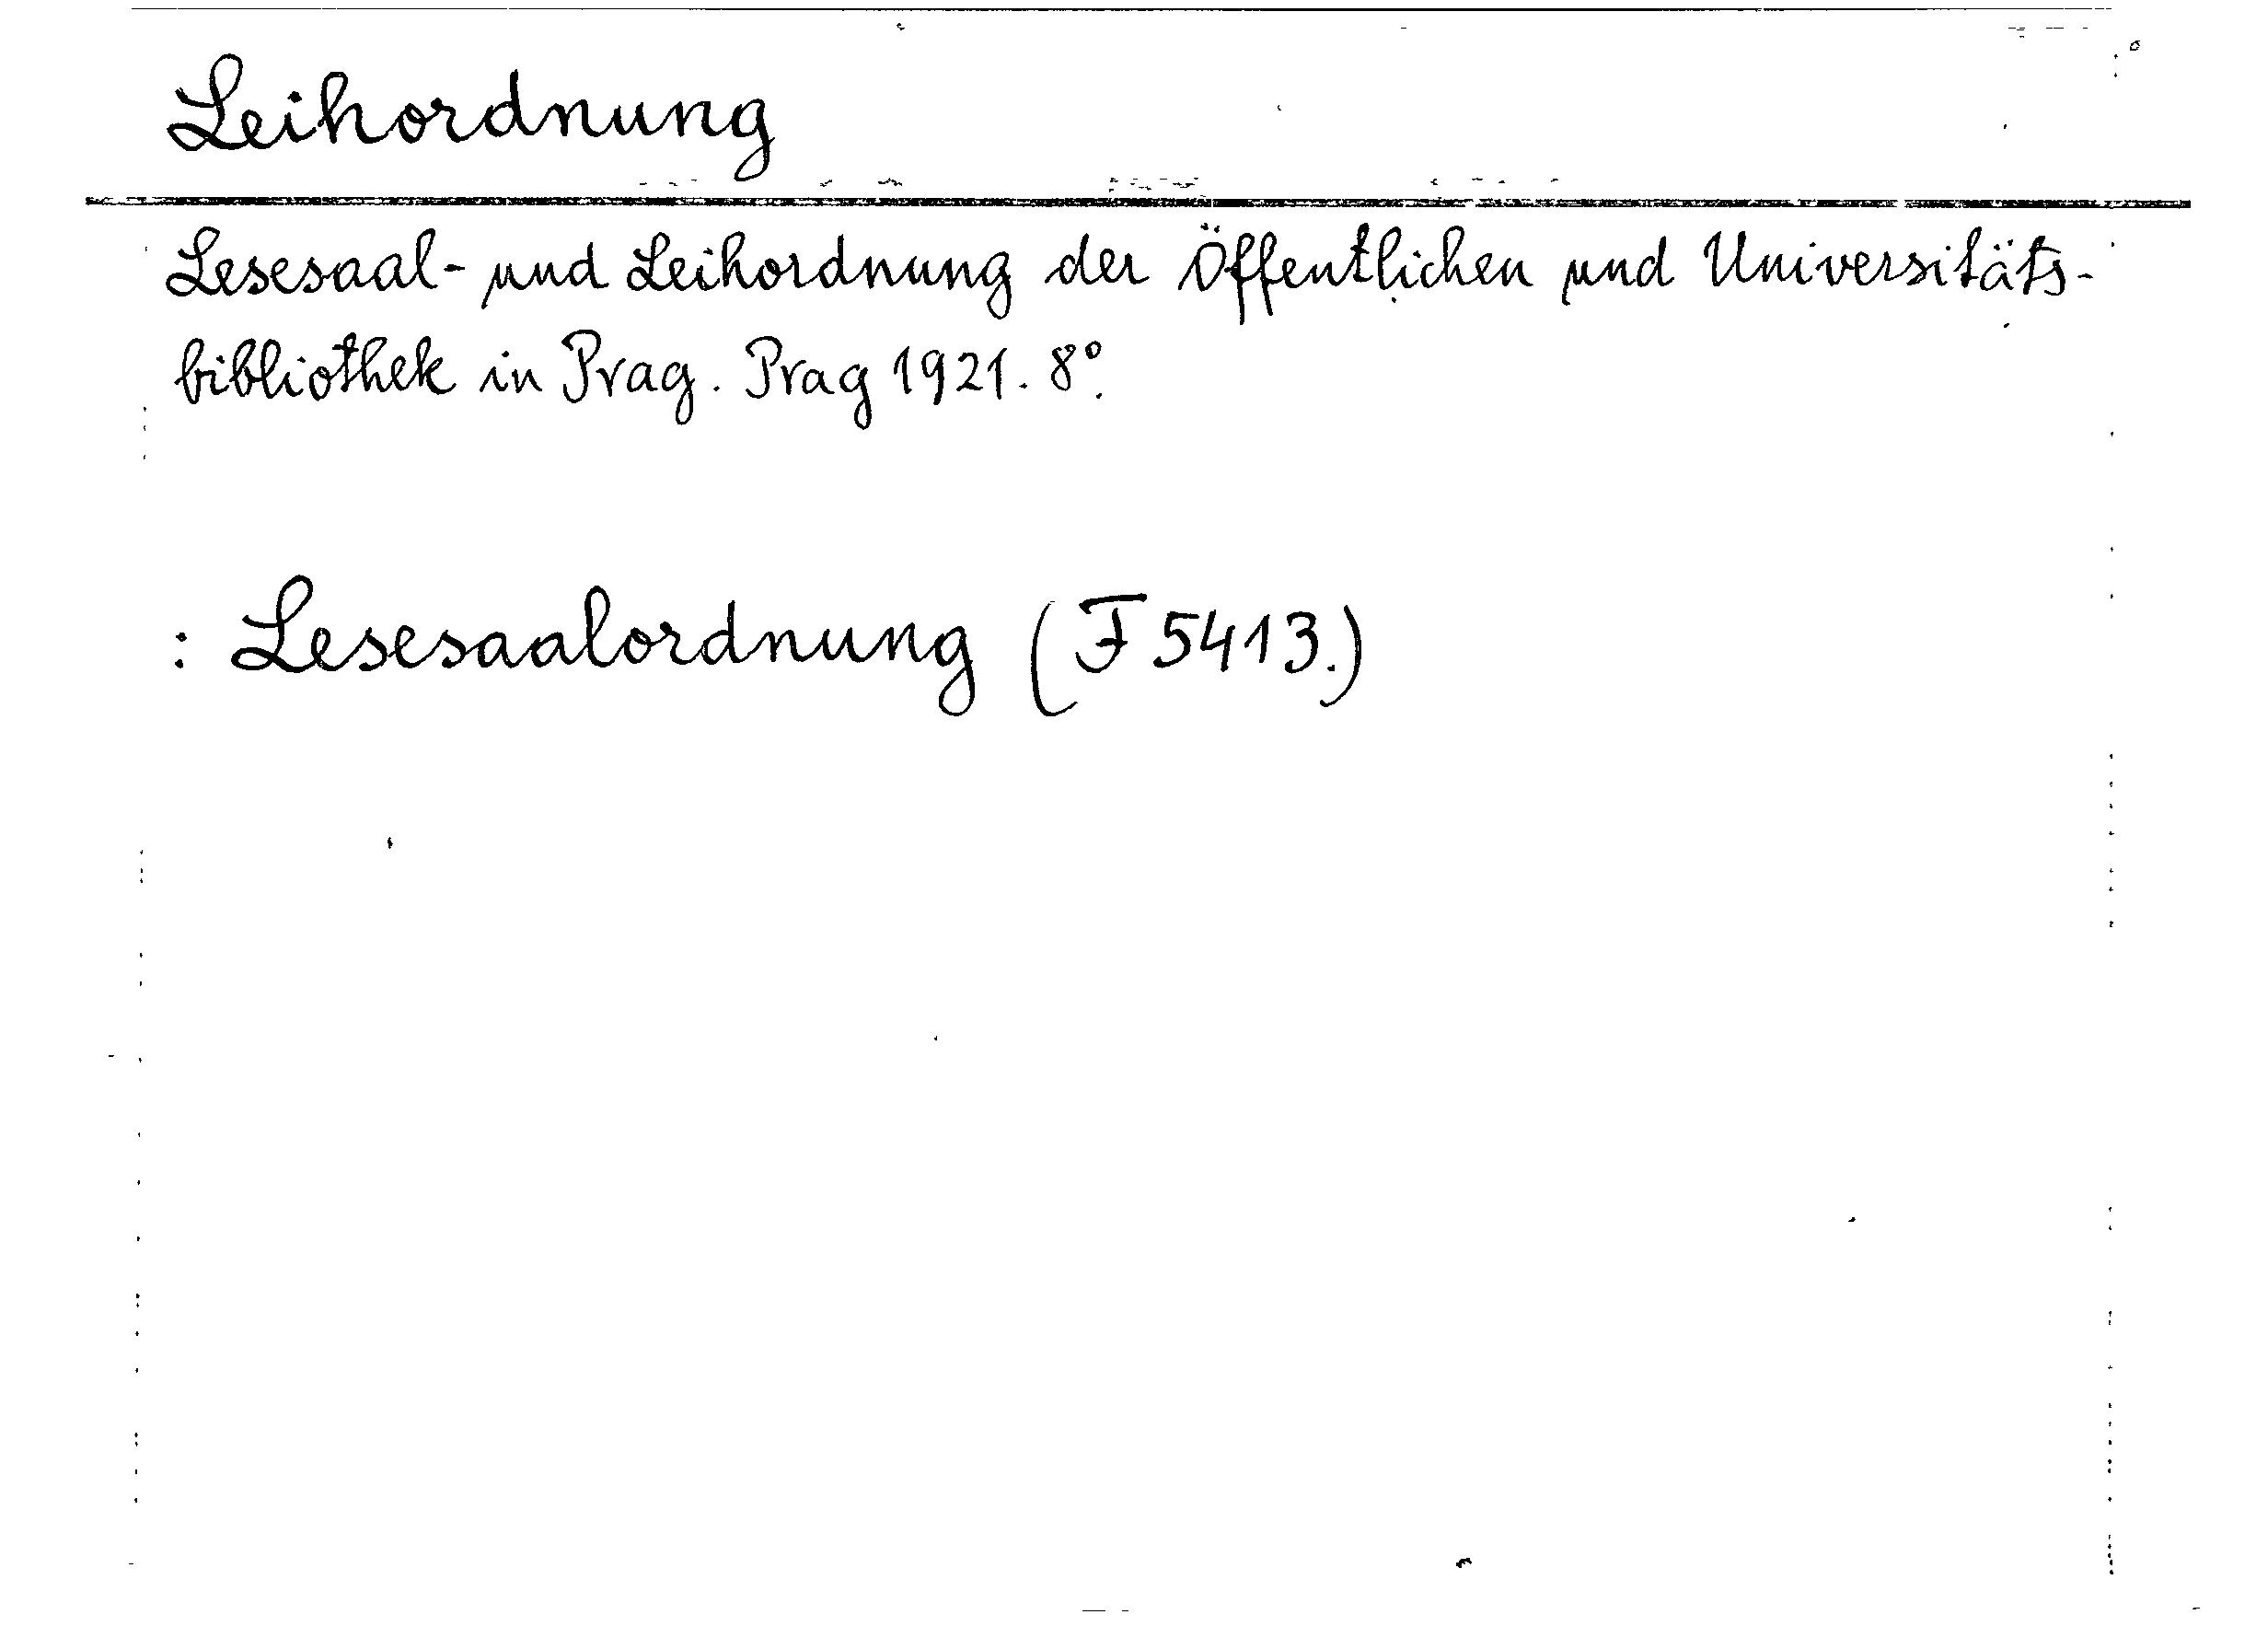 Leihordnung
Lesesaal- und Leihordnung der Öffentlichen und Universitäts-
bibliothek in Prag. Prag 1921. 8°.
: Lesesaalordnung (F 5413.)